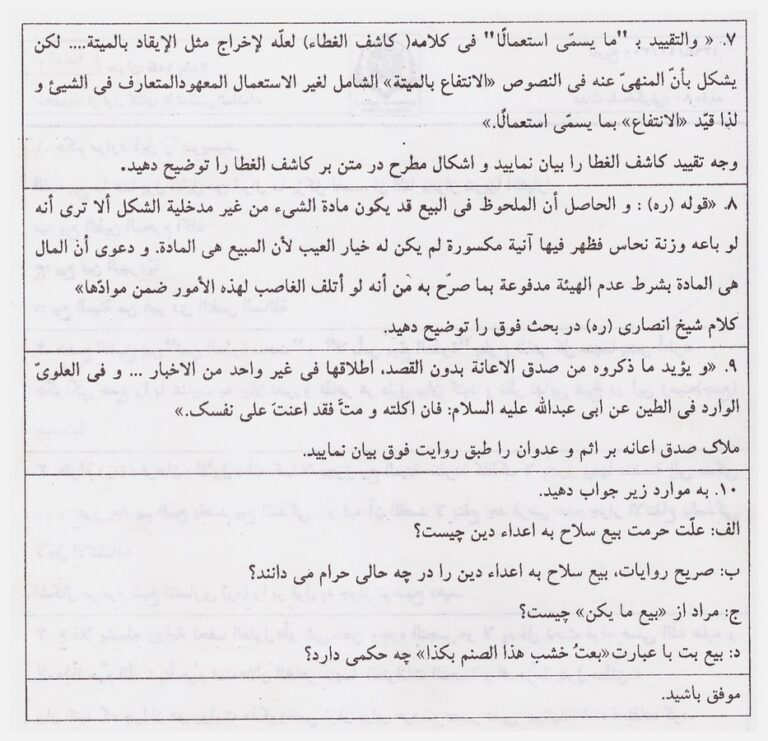 ۷. « والتقیید بـ "ما یسمّی استعمالًا" فی کلامه( کاشف الغطاء) لعلّه لإخراج مثل الإیقاد بالمیتة.... لکن
یشکل بأنّ المنهیّ عنه فی النصوص «الانتفاع بالمیتة» الشامل لغیر الاستعمال المعهودالمتعارف فی الشیئ و
لذا قیّد «الانتفاع» بما یسمّی استعمالًا.»
وجه تقیید کاشف الغطا را بیان نمایید و اشکال مطرح در متن بر کاشف الغطا را توضیح دهید.
۸. «قوله (ره) : و الحاصل أن الملحوظ فی البیع قد یکون مادة الشیء من غیر مدخلیة الشکل ألا تری أنه
لو باعه وزنة نحاس فظهر فیها آنیة مکسورة لم یکن له خیار العیب لأن المبیع هی المادة. و دعوی أن المال
هی المادة بشرط عدم الهیئة مدفوعة بما صرّح به من أنه لو أتلف الغاصب لهذه الأمور ضمن موادّها»
کلام شیخ انصاری (ره) در بحث فوق را توضیح دهید.
۹. «و یؤید ما ذکروه من صدق الاعانة بدون القصد، اطلاقها فی غیر واحد من الاخبار ... و فی العلویّ
الوارد فی الطین عن ابی عبدالله علیه السلام: فان اکلته و متَّ فقد اعنتَ علی نفسک.»
ملاک صدق اعانه بر اثم و عدوان را طبق روایت فوق بیان نمایید.
۱۰. به موارد زیر جواب دهید.
الف: علّت حرمت بیع سلاح به اعداء دین چیست؟
ب: صریح روایات، بیع سلاح به اعداء دین را در چه حالی حرام می دانند؟
ج: مراد از «بیع ما یکن» چیست؟
د: بیع بت با عبارت«بعتُ خشب هذا الصنم بکذا» چه حکمی دارد؟
موفق باشید.